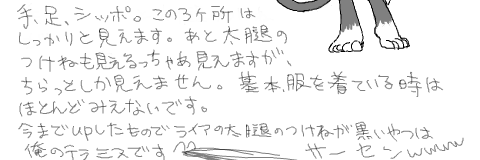 手、足、シッポ。この3ヶ所は
しっかりと見えます。あと太腿の
つけねも見えるっちゃあ見えますが、
ちらっとしか見えません。基本、服を着ている時は
ほとんどみえないです。
今までupしたものでライアの太腿のつけねが黒いやつは
俺のテラミスです サーセンwwww